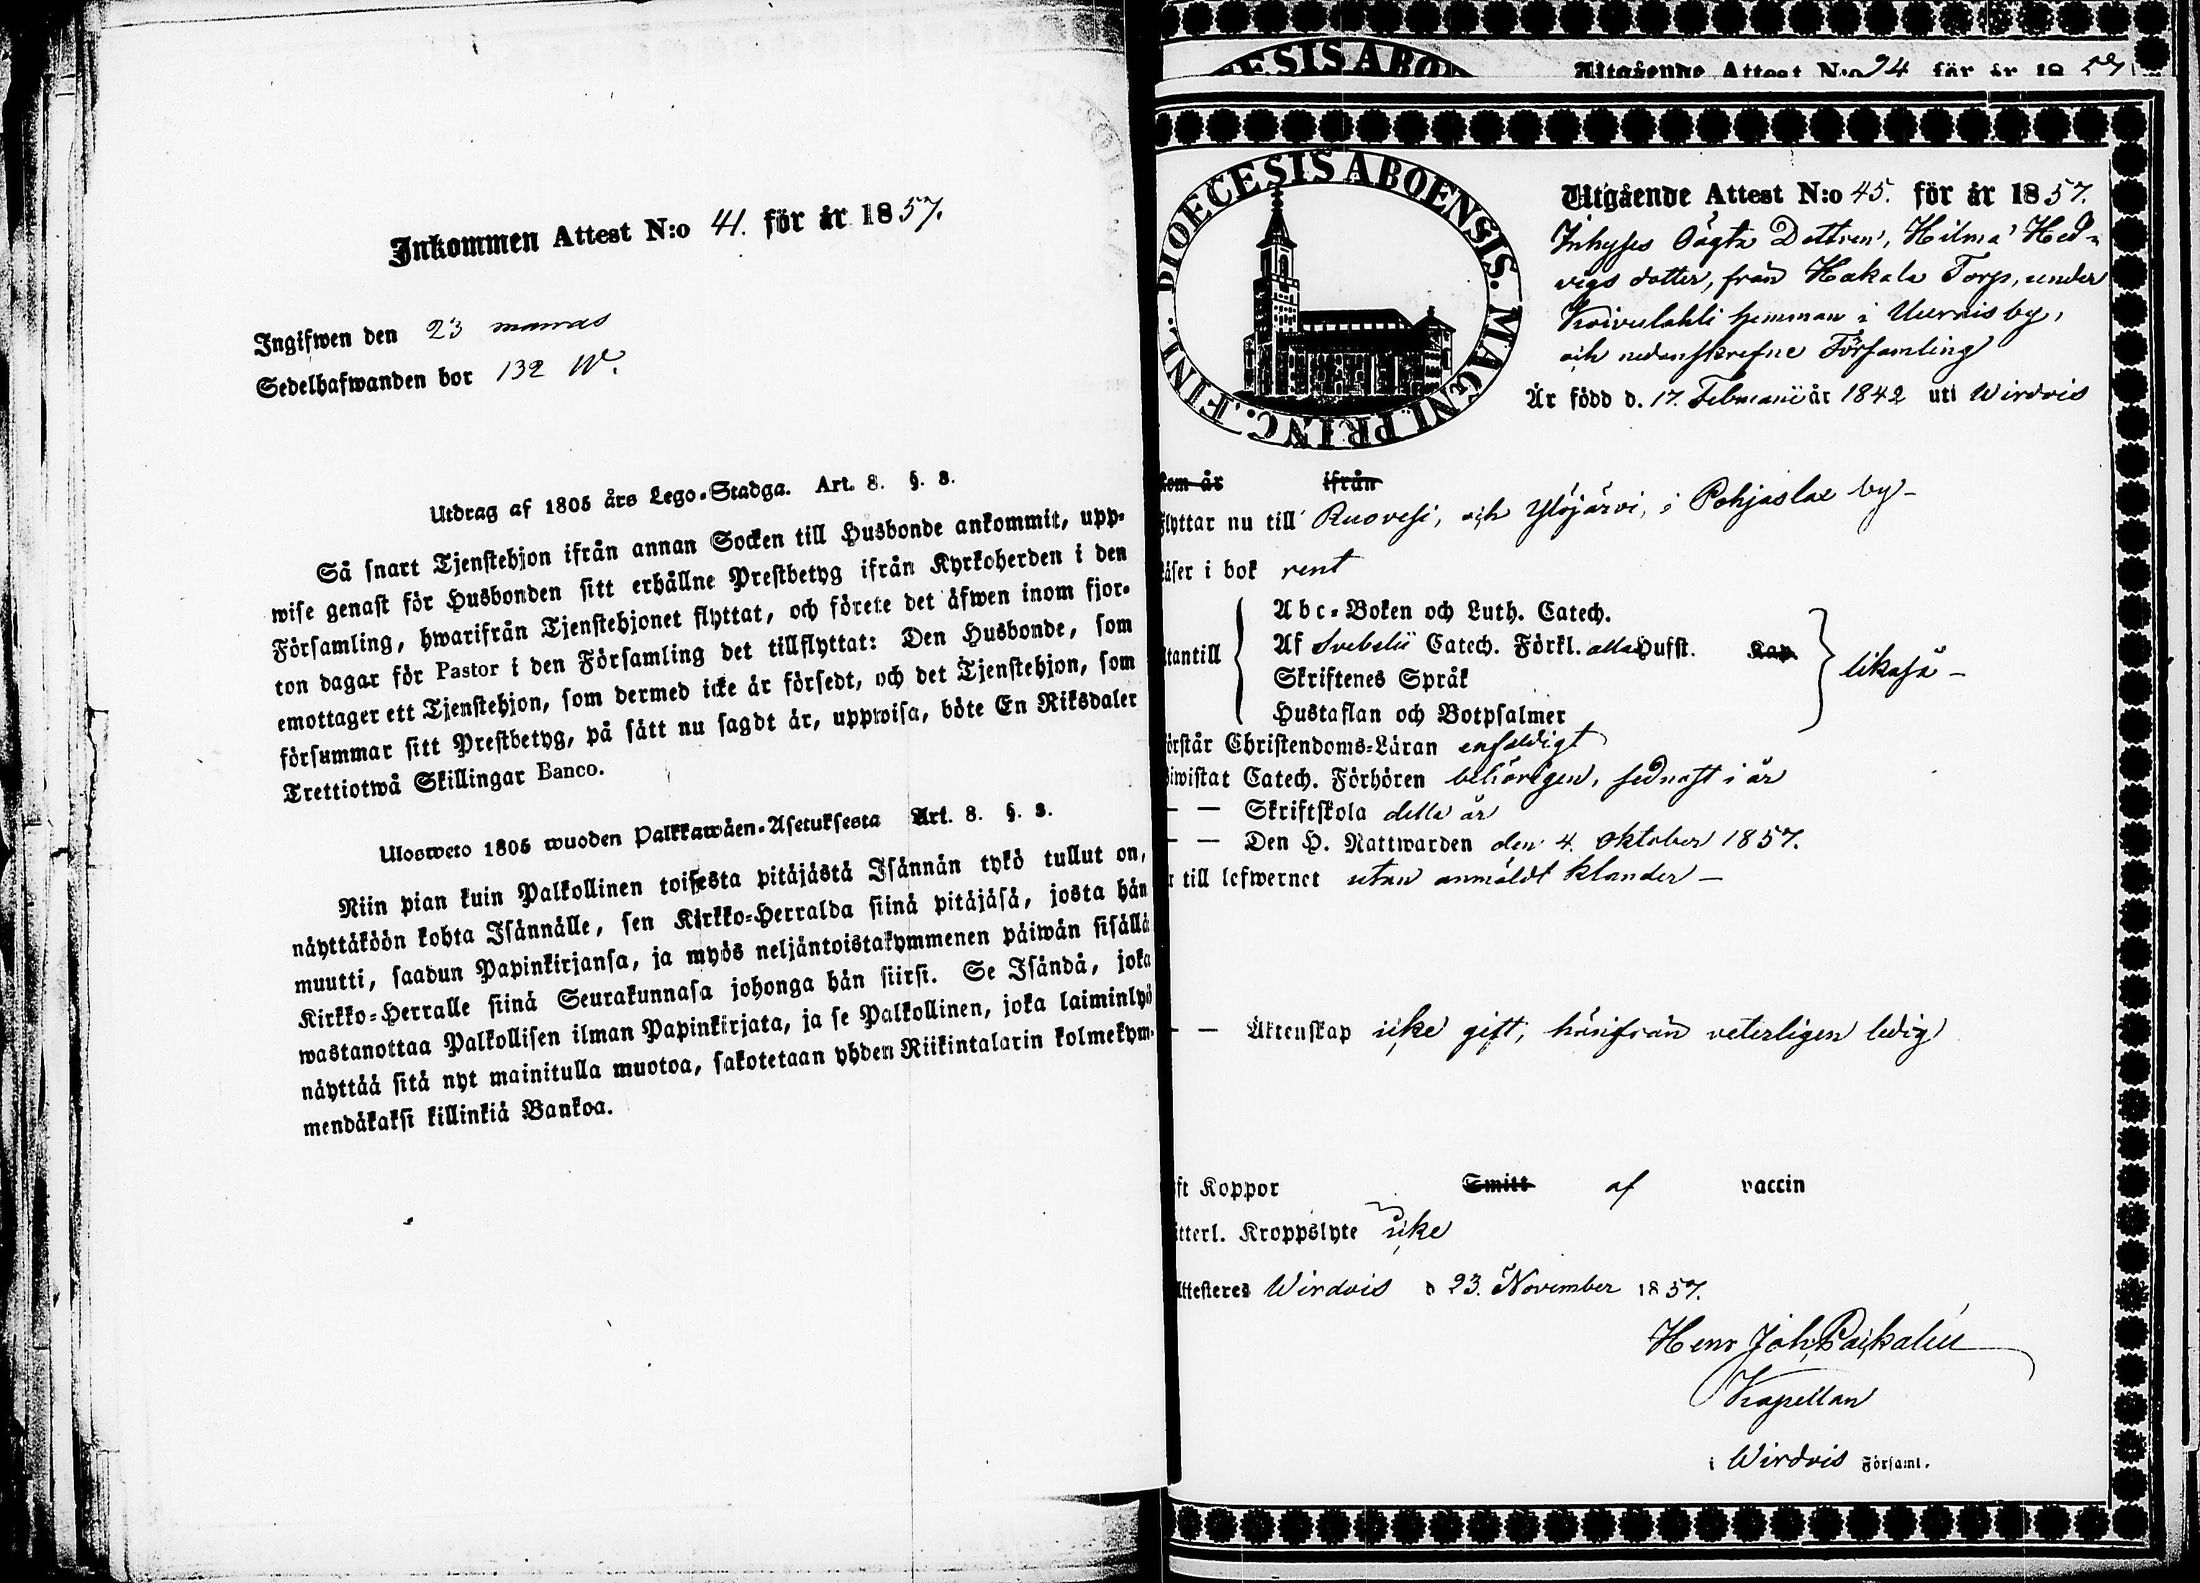 Inkommen Attest N:o 41. för år 1857.
Ingifwen den 23
Sedelhafwanden bor 132 W.
Utdrag af 1805 års Lego-Stadga. Art. 8. §. 8.
Så snart Tjenstehjon ifrån annan Socken till Husbonde ankommit, upp-
wise genast för Husbonden sitt erhållne Prestbetyg ifrån Kyrkoherden i den
Församling, hwarifrån Tjenstehjonet flyttat, och förete det äfwen inom fjor-
ton dagar för Pastor i den Församling det tillflyttat: Den Husbonde, som
emottager ett Tjenstehjon, som dermed icke är försedt, och det Tjenstehjon, som
försummar sitt Prestbetyg, på sätt nu sagdt är, uppwisa, böte En Riksdaler
Trettiotwå Skillingar Banco.
Ulosweto 1805 wuoden Palkkawäen-Asetuksesta Art. 8. §. 8.
Niin pian kuin Palkollinen toisesta pitäjästä Isännän tykö tullut on,
näyttäköön kohta Isännälle, sen Kirkko-Herralda siinä pitäjäsä, josta hän
muutti, saadun Papinkirjansa, ja myös neljäntoistakymmenen päiwän sisällä
Kirkko-Herralle siinä Seurakunnasa johonga hän siirsi. Se Isändä, joka
wastanottaa Palkollisen ilman Papinkirjata, ja se Palkollinen, joka laiminlyö
näyttää sitä nyt mainitulla muotoa, sakotetaan yhden Riikintalarin kolmekym-
mendäkaksi killinkiä Bankoa.
ESIS ABO
Utgående Attest N:o 94 för år 1857
DIOECESIS ABOENSIS. MAGNI PRINC. FINL.
Utgående Attest N:o 45. för år 1857.
Inhyses Dottren, Hilma Hed-
vigs dotter, från Hakala Torp, under
Koivulahti hemman i by,
och nedanskrefne Församling
Är född d. 17. Februarii år 1842 uti Wirdois
kom år ifrån
flyttar nu till Ruovesi, och Ylöjärvi, i Pohjaslax by -
läser i bok rent
utantill
Abc-Boken och Luth. Catech.
Af Svebelii Catech. Förkl. alla Hufst. Kap.
Skriftenes Språk
Hustaflan och Botpsalmer
likaså -
örstår Christendoms-Läran enfaldigt
iwistat Catech. Förhören behörigen, sednast i år
- - Skriftskola detta år
- - Den H. Nattwarden den 4. Oktober 1857.
r till lefwernet utan anmäldt klander -
- - Äktenskap icke gift, härifrån veterligen ledig
ft Koppor Smitt af vaccin
itterl. Kroppslyte icke
Attesteres Wirdois d 23. November 1857.
Henr Joh
Kapellan
i Wirdois Församl.